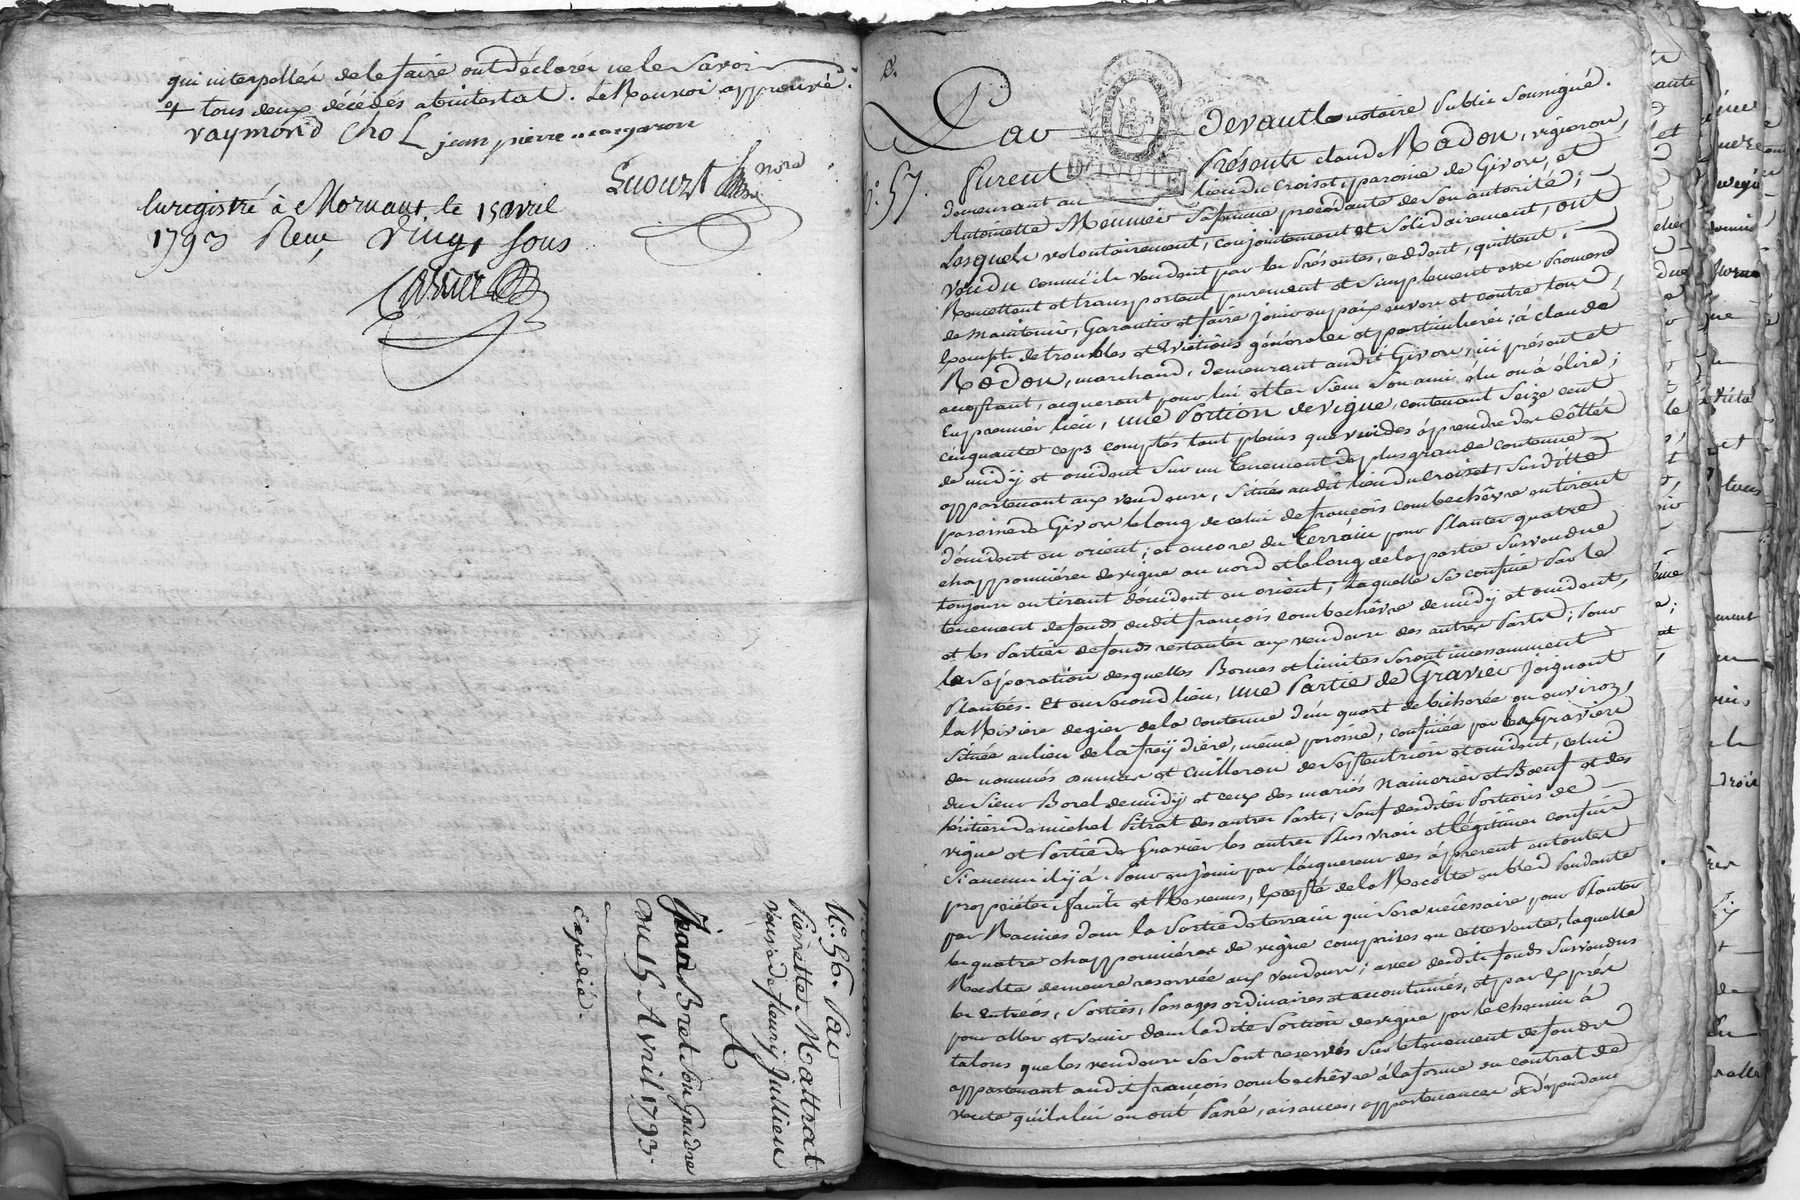 qui interpellés de le faire ont déclarés ne le savoir
tous deux décédés abintestat. le Renvoi approuvé.
raymond chol jean pierre
Enregistré à Mornant le 15 avril
1793 Reçu vingt sous
N.° 56. Par
Pierrette Mattrat
veuve de fleury Jullien
A
Jean Bret son Gendre
Du 15 Avril 1793.
Expédié.
N.° 57.
Par devant le notaire Public soussigné.
Furent Présents claude Rodon, vigneron,
demeurant au lieu du Croisot, paroisse de Givors, et
Antoinette Meunier sa femme procédante de son autorité;
Lesquels volontairement, conjointement et solidairement, ont
vendu comme ils vendent par les Présentes, cédent, quittent,
Remettent et transportent purement et simplement avec Promesse
de maintenir, Garantir et faire jouir en paix envers et contre tous,
Exempte de troubles et Evictions générales et particulieres; à claude
Rodon, marchand, demeurant audit Givors, ici présent et
acceptant, acquerant pour lui et les siens son ami élu ou à élire;
En premier lieu, une Portion de vigne, contenant Seize cent
cinquante ceps comptés tant pleins que vuides à prendre des côttés
de midÿ et occident sur un tenement de plus grande contenue
appartenant aux vendeurs, situés audit lieu du Croisot, susditte
paroisse de Givors le long de celui de françois combechêvre en tirant
d'occident en orient; et encore du terrain pour Planter quatre
chapponnières de vigne au nord et le long de la partie sus vendue
toujours en tirant d'occident en orient; Laquelle se confine Par le
tenement de fonds dudit françois combechêvre de midÿ et occident,
et les Parties de fonds restantes aux vendeurs des autres Parts; Pour
la Séparation desquelles Bornes et limites seront incessamment
Plantées. Et en second lieu, une Partie de Gravier joignant
la Riviere de gier de la contenue d'un quart de bicherée ou environ,
située au lieu de la freÿdière, même paroisse, confinée par les Graviers
des nommés et Cuilleron de septentrion et occident, celui
du sieur Borel de midÿ et ceux des mariés et Boeuf et des
héritiers de michel Pitrat des autres Parts; sauf desdites Portions de
vigne et Partie de Gravier les autres Plus vrais et légitimes confins
si aucuns il ÿ à. Pour en jouir par l'acquereur dès àprésent en toutes
propriétés, fruits et Revenus, Excepté de la Recolte en bled Pendante
par Racines dans la Partie de terrain qui sera nécessaire pour Planter
les quatre chapponnières de vigne comprises en cette vente, laquelle
Recolte demeure reservée aux vendeurs; avec desdits fonds sus vendus
les Entrées, Sorties, Passages ordinaires et accoutumés, et par Exprès
pour aller et venir dans ladite Portion de vigne par le chemin à
talons que les vendeurs se sont reservés sur le tenement de fonds
appartenant audit françois combechêvre à la forme du contrat de
vente qu'ils lui en ont Passé, aisances, appartenances et dépendances